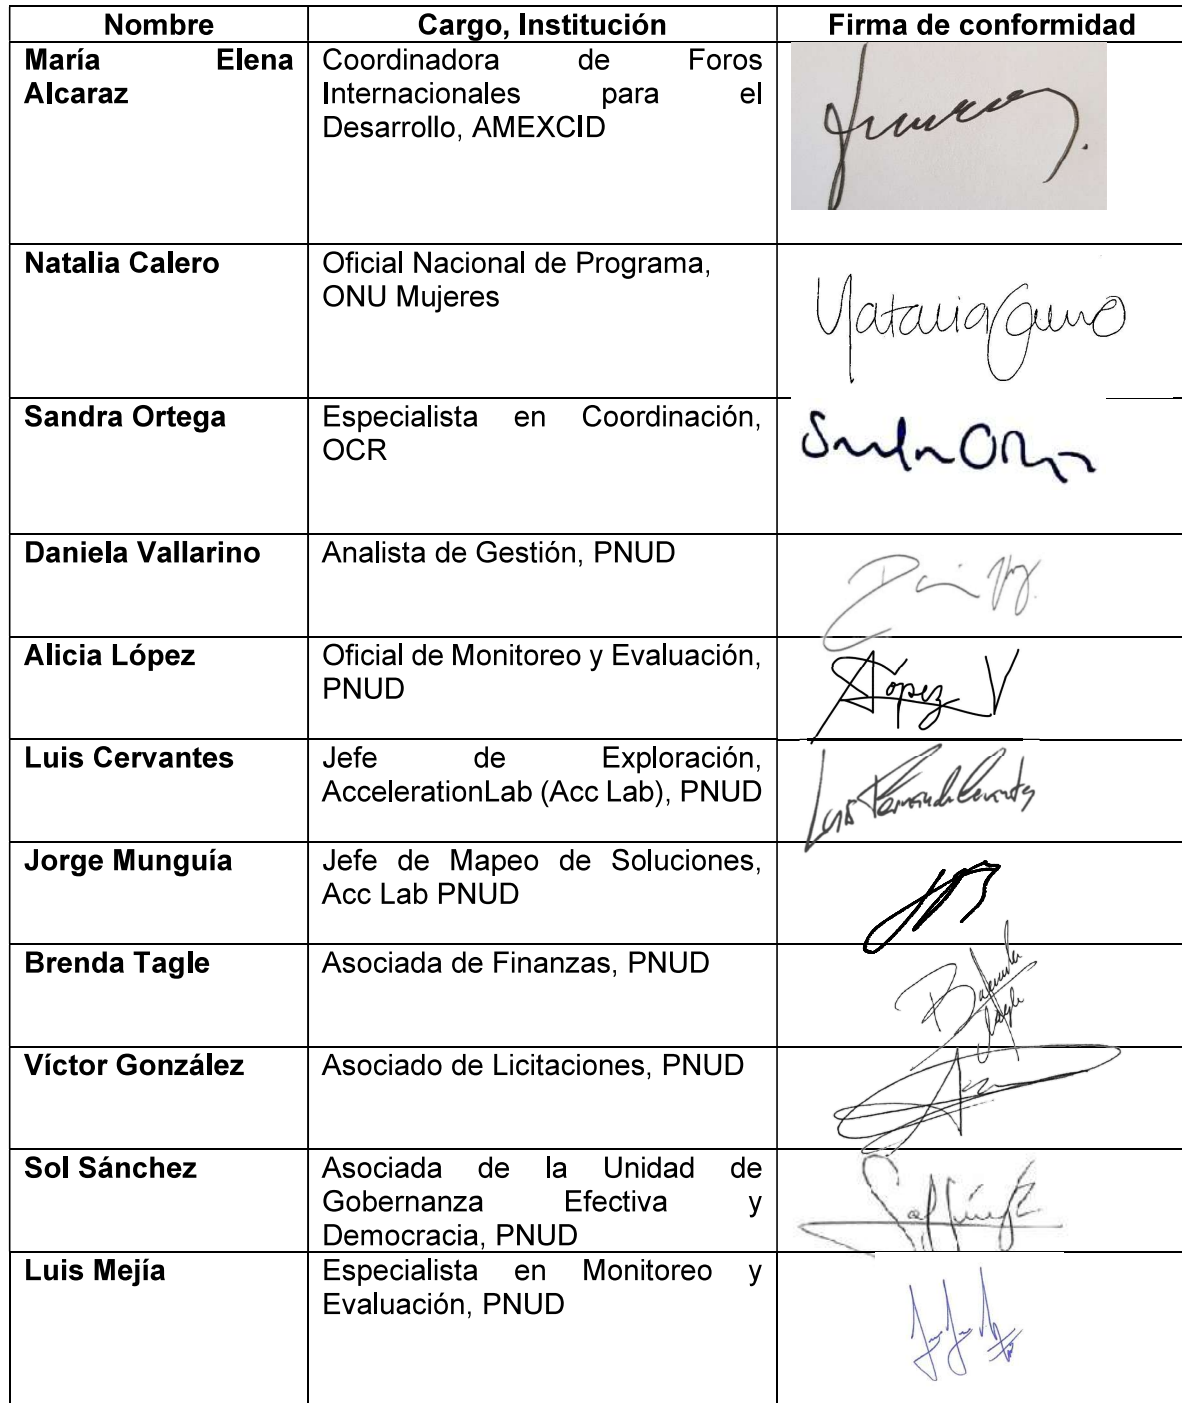 Nombre Cargo, Institución Firma de conformidad
María Elena Coordinadora de Foros
Alcaraz Internacionales para el
Desarrollo, AMEXCID
Natalia Calero Oficial Nacional de Programa,
ONU Mujeres
Natalia
Sandra Ortega Especialista en Coordinación,
OCR
Daniela Vallarino Analista de Gestión, PNUD
Alicia López Oficial de Monitoreo y Evaluación,
PNUD
López V
Luis Cervantes Jefe de Exploración,
AccelerationLab (Acc Lab), PNUD
Luis Fernando Cervantes
Jorge Munguía Jefe de Mapeo de Soluciones,
Acc Lab PNUD
Brenda Tagle Asociada de Finanzas, PNUD
Víctor González Asociado de Licitaciones, PNUD
Sol Sánchez Asociada de la Unidad de
Gobernanza Efectiva y
Democracia, PNUD
Luis Mejía Especialista en Monitoreo y
Evaluación, PNUD